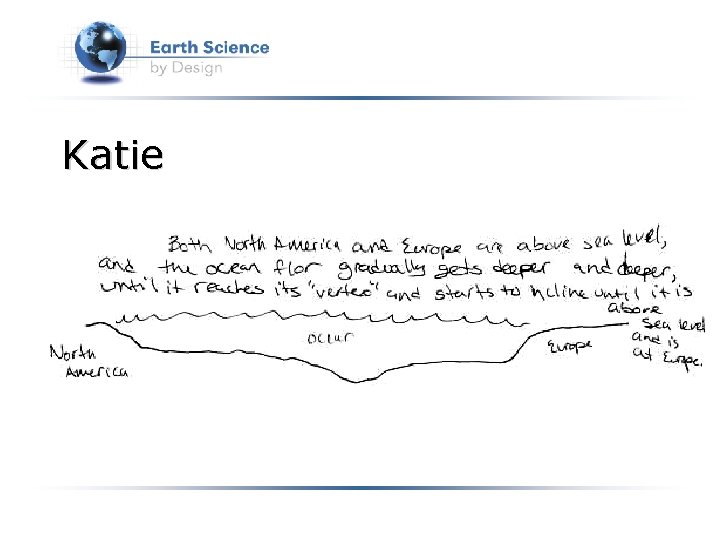 Earth Science
by Design
Katie
Both North America and Europe are above sea level,
and the ocean flor gradually gets deeper and deeper,
until it reaches its "vertex" and starts to incline until it is
above
sea level
and is
at Europe.
ocean
North
America
Europe